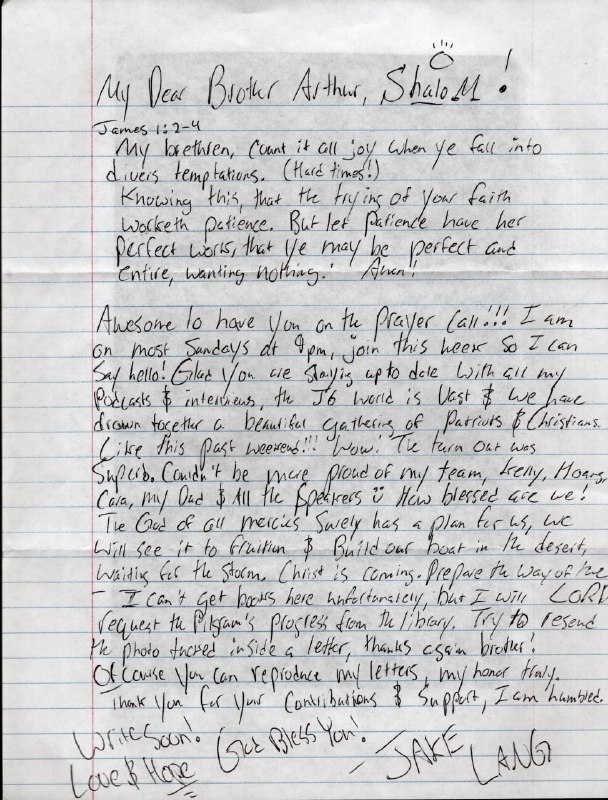 My Dear Brother Arthur, Shalom!
James 1:2-4
My brethren, count it all joy when ye fall into
divers temptations. (Hard times!)
Knowing this, that the trying of your faith
worketh patience. But let patience have her
perfect work, that ye may be perfect and
entire, wanting nothing. Amen!
Awesome to have you on the prayer call!!! I am
on most Sundays at 9pm, join this week so I can
say hello! Glad you are staying up to date with all my
Podcasts & interviews, the J6 world is vast & we have
drawn together a beautiful gathering of patriots & Christians.
Like this past weekend!!! Wow! The turn out was
superb. Couldn't be more proud of my team, Kelly, Hoang,
Cara, my Dad & All the Speakers How blessed are we!
The God of all mercies surely has a plan for us, we
will see it to fruition & Build our boat in the desert,
waiting for the storm. Christ is coming. Prepare the way of the
LORD
- I can't get books here unfortunately, but I will
request the Pilgram's progress from the library. Try to resend
the photo tucked inside a letter, thanks again brother!
Of course you can reproduce my letters, my honor truly.
Thank you for your contributions & support, I am humbled.
Write Soon! God Bless You!
Love & Hope
- JAKE LANG